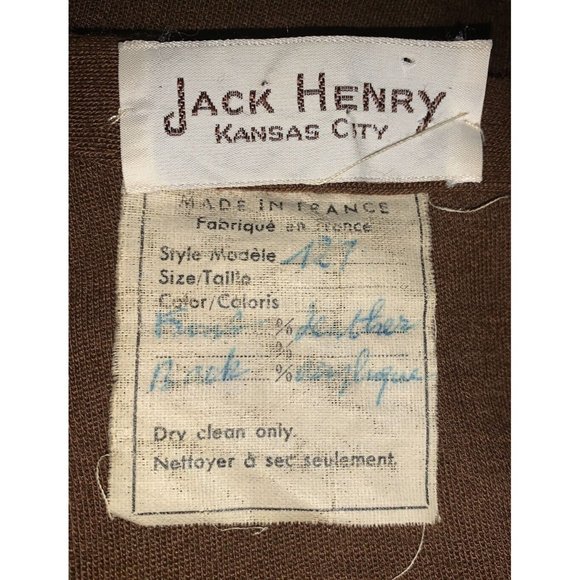 JACK HENRY
KANSAS CITY
MADE IN FRANCE
Fabriqué en France
Style Modèle 127
Size/Taille
Color/Coloris
% leather
%
Back % acrylique
Dry clean only.
Nettoyer à sec seulement.